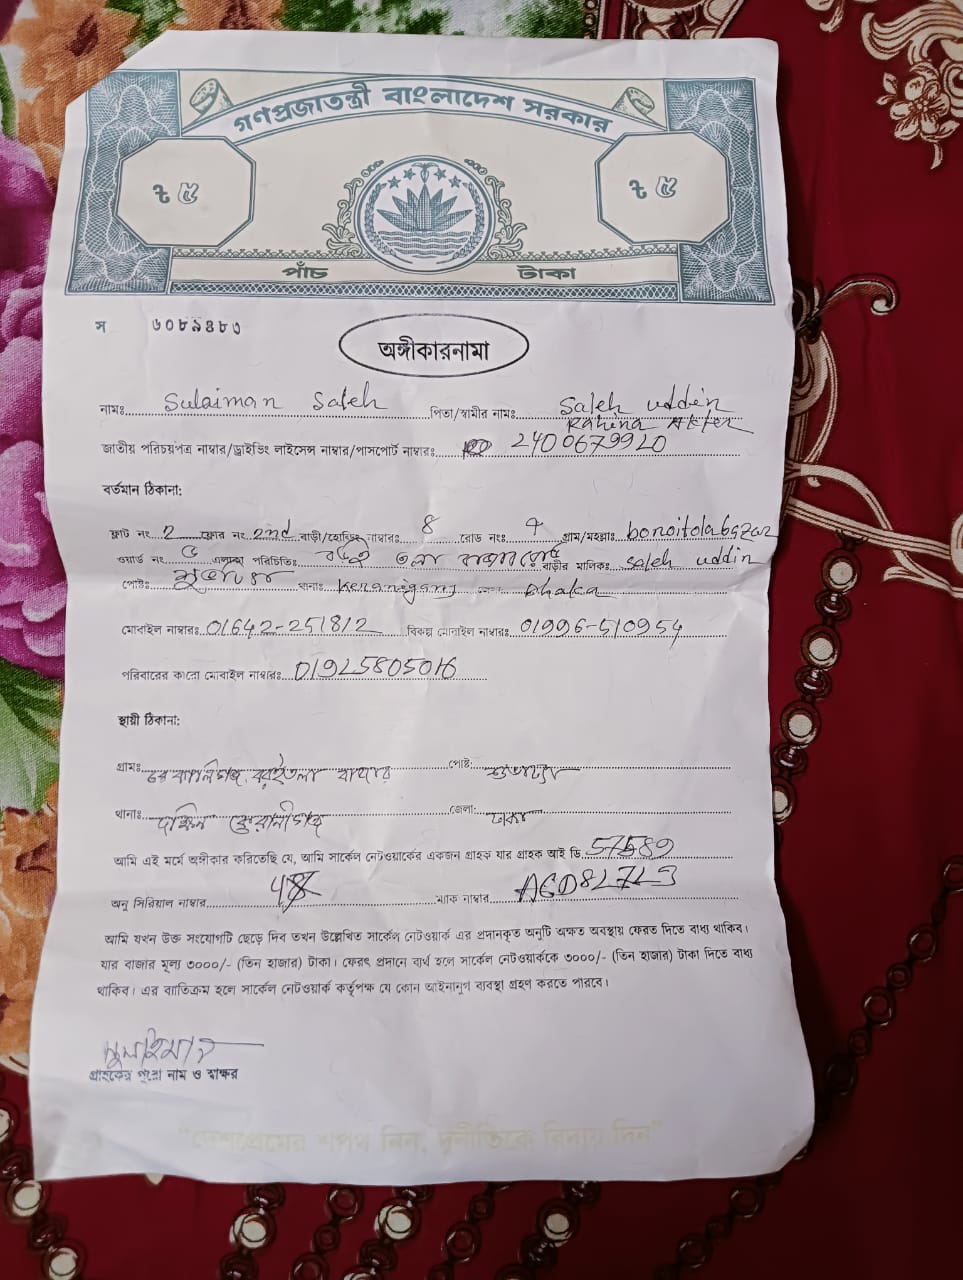 গণপ্রজাতন্ত্রী বাংলাদেশ সরকার
৳ ৫ ৳ ৫
পাঁচ টাকা
স ৬০৮৯৪৮৩
অঙ্গীকারনামা
নামঃ Sulaiman Saleh পিতা/স্বামীর নামঃ Saleh uddin
Rahina Akter
জাতীয় পরিচয়পত্র নাম্বার/ড্রাইভিং লাইসেন্স নাম্বার/পাসপোর্ট নাম্বারঃ 2400679920
বর্তমান ঠিকানা:
ফ্লাট নং 2 ফ্লোর নং 2nd বাড়ী/হোল্ডিং নাম্বারঃ 8 রোড নংঃ গ্রাম/মহল্লাঃ
ওয়ার্ড নং এলাকা পরিচিতিঃ বাড়ীর মালিকঃ Saleh uddin
পোষ্টঃ থানাঃ Keranigang জেলা Dhaka
মোবাইল নাম্বারঃ 01642-251812 বিকল্প মোবাইল নাম্বারঃ 01996-510954
পরিবারের কারো মোবাইল নাম্বারঃ 01925805016
স্থায়ী ঠিকানা:
গ্রামঃ বরইতলা বাজার পোষ্ট:
থানাঃ দক্ষিন কেরানীগঞ্জ জেলা: ঢাকা
আমি এই মর্মে অঙ্গীকার করিতেছি যে, আমি সার্কেল নেটওয়ার্কের একজন গ্রাহক যার গ্রাহক আই ডি 57589
অনু সিরিয়াল নাম্বার ম্যাক নাম্বার
আমি যখন উক্ত সংযোগটি ছেড়ে দিব তখন উল্লেখিত সার্কেল নেটওয়ার্ক এর প্রদানকৃত অনুটি অক্ষত অবস্থায় ফেরত দিতে বাধ্য থাকিব।
যার বাজার মূল্য ৩০০০/- (তিন হাজার) টাকা। ফেরৎ প্রদানে ব্যর্থ হলে সার্কেল নেটওয়ার্ককে ৩০০০/- (তিন হাজার) টাকা দিতে বাধ্য
থাকিব। এর ব্যতিক্রম হলে সার্কেল নেটওয়ার্ক কর্তৃপক্ষ যে কোন আইনানুগ ব্যবস্থা গ্রহণ করতে পারবে।
সুলাইমান
গ্রাহকের পূরো নাম ও স্বাক্ষর
"দেশপ্রেমের শপথ নিন, দুর্নীতিকে বিদায় দিন"